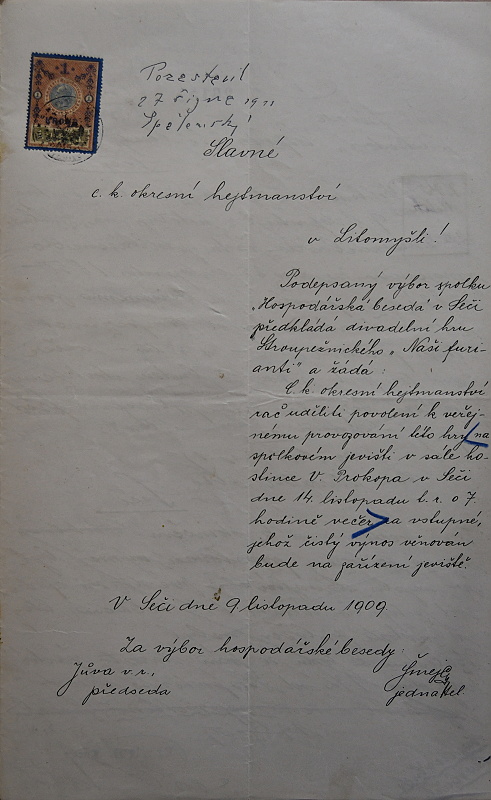 27 října 1911
Slavné
c. k. okresní hejtmanství
v Litomyšli!
Podepsaný výbor spolku
„Hospodářská beseda v Seči
předkládá divadelní hru
Stroupežnického „Naši furi-
anti" a žádá:
C. k. okresní hejtmanství
rač udělili povolení k veřej-
nému provozování této hry na
spolkovém jevišti v sále ho-
stince V. Prokopa v Seči
dne 14. listopadu t. r. o 7.
hodině večer za vstupné,
jehož čistý výnos věnován
bude na zařízení jeviště.
V Seči dne 9 listopadu 1909
Za výbor hospodářské besedy:
Jůva v. r.,
předseda
jednatel.